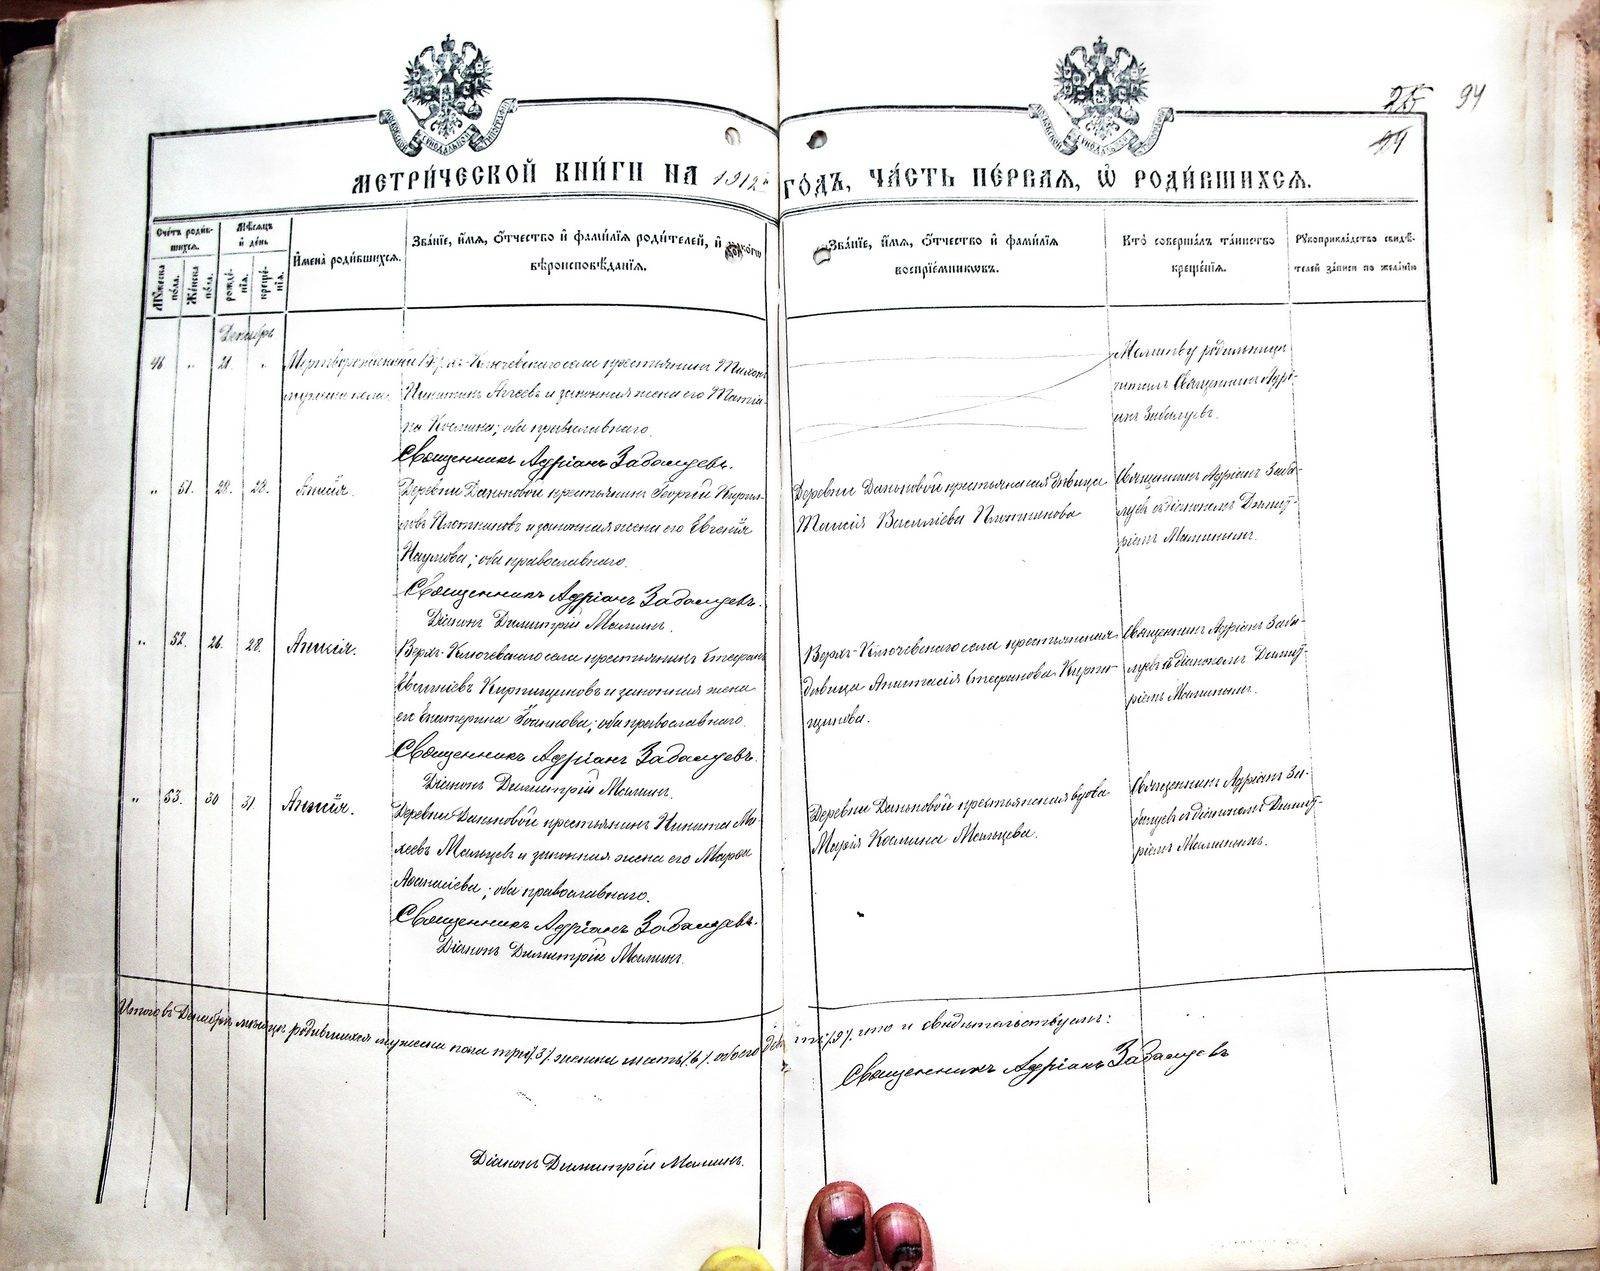 25 94
94
МЕТРИЧЕСКОЙ КНИГИ НА 1912й ГОДЪ, ЧАСТЬ ПЕРВАЯ, Ѡ РОДИВШИХСЯ.
Счетъ родившихся.
Мужеска пола.
Женска пола.
Мѣсяцъ и день
рожденія.
крещенія.
Имена родившихся.
Званіе, имя, отчество и фамилія родителей, и какого вѣроисповѣданія.
Званіе, имя, отчество и фамилія воспріемниковъ.
Кто совершалъ таинство крещенія.
Рукоприкладство свидѣтелей записи по желанію
Декабрь
46 " 21. "
Мертворожденный
мужеска пола.
Верхъ-Ключевскаго села крестьянинъ Тихонъ
Никитинъ Агѣевъ и законная жена его Татіа-
на Космина; оба православнаго.
Священникъ Адріанъ Забалуевъ.
Молитву родильницѣ
читалъ Священникъ Адрі-
анъ Забалуевъ.
" 51. 28. 28. Анисія.
Деревни Даньковой крестьянинъ Георгій Кирил-
ловъ Плотниковъ и законная жена его Евгенія
Наумова; оба православнаго.
Священникъ Адріанъ Забалуевъ.
Діаконъ Димитрій Малинъ.
Деревни Даньковой крестьянская дѣвица
Таисія Василіева Плотникова
Священникъ Адріанъ Заба-
луевъ съ діакономъ Димит-
ріемъ Малинымъ.
" 52. 26. 28. Анисія.
Верхъ-Ключевскаго села крестьянинъ Стефанъ
Евгеніевъ Кирпищиковъ и законная жена
его Екатерина Іоаннова; оба православнаго.
Священникъ Адріанъ Забалуевъ.
Діаконъ Димитрій Малинъ.
Верхъ-Ключевскаго села крестьянская
дѣвица Анастасія Стефанова Кирпи-
щикова.
Священникъ Адріанъ Заба-
луевъ съ діакономъ Димит-
ріемъ Малинымъ.
" 53. 30 31. Анисія.
Деревни Даньковой крестьянинъ Никита Мо-
кеевъ Мальцевъ и законная жена его Марфа
Афанасіева; оба православнаго.
Священникъ Адріанъ Забалуевъ.
Діаконъ Димитрій Малинъ.
Деревни Даньковой крестьянская вдова
Марія Космина Мальцева.
Священникъ Адріанъ За-
балуевъ съ діакономъ Димит-
ріемъ Малинымъ.
Итого въ Декабрѣ мѣсяцѣ родившихся мужеска пола три /3/. женска шесть /6/. обоего девять /9/. что и свидѣтельствуемъ:
Священникъ Адріанъ Забалуевъ
Діаконъ Димитрій Малинъ.